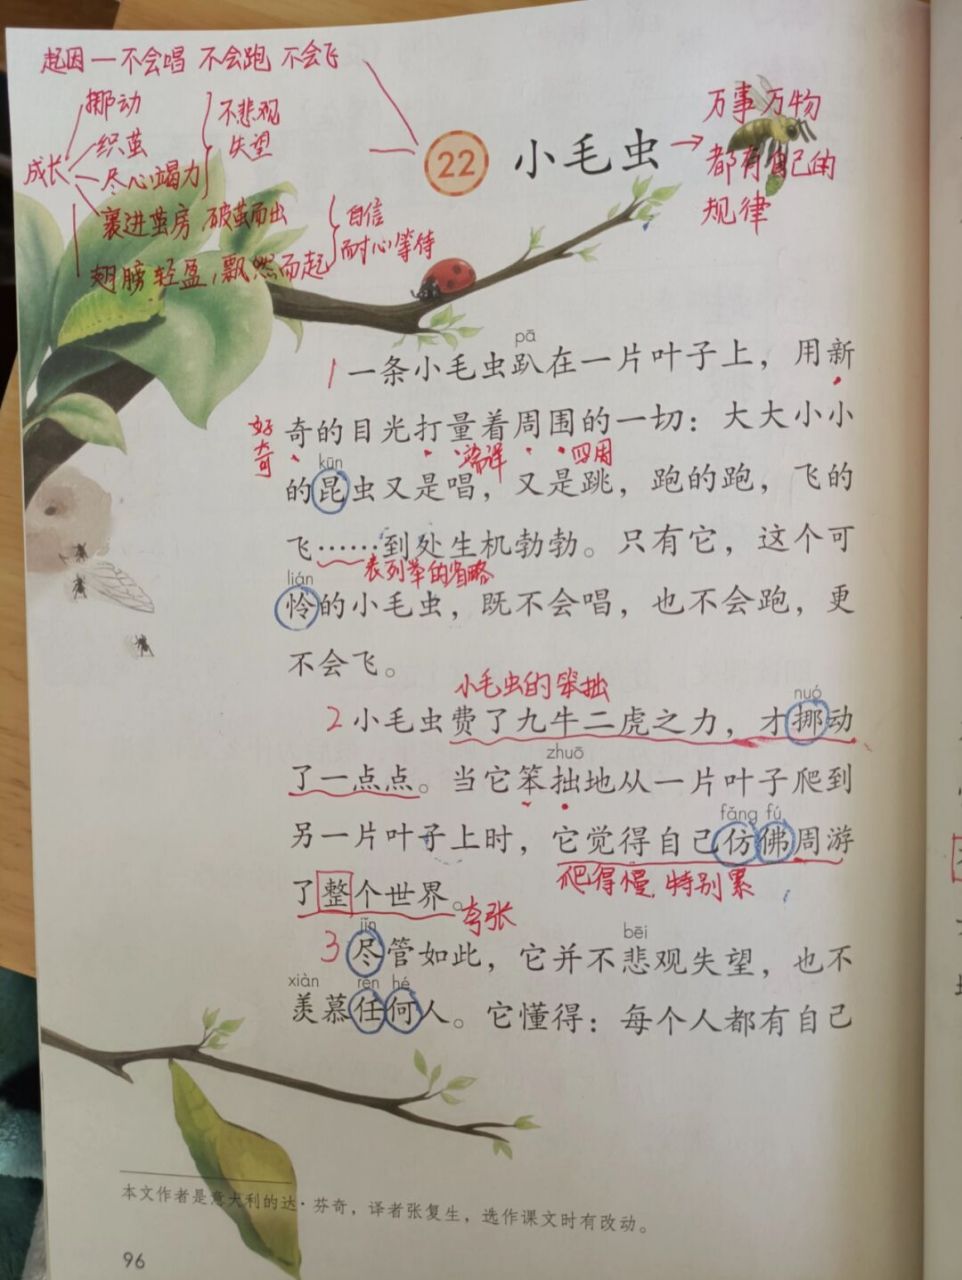 起因一不会唱 不会跑 不会飞
成长
挪动
织茧
尽心竭力
不悲观
失望
裹进茧房 破茧而出
翅膀轻盈，飘然而起
自信
耐心等待
22 小毛虫
万事万物
都有自己的
规律
pā
1 一条小毛虫趴在一片叶子上，用新
好奇
奇的目光打量着周围的一切：大大小小
端详
四周
kūn
的昆虫又是唱，又是跳，跑的跑，飞的
飞……到处生机勃勃。只有它，这个可
表列举的省略
lián
怜的小毛虫，既不会唱，也不会跑，更
不会飞。
小毛虫的笨拙
nuó
2 小毛虫费了九牛二虎之力，才挪动
zhuō
了一点点。当它笨拙地从一片叶子爬到
fǎng fú
另一片叶子上时，它觉得自己仿佛周游
爬得慢，特别累
了整个世界。
夸张
jǐn bēi
3 尽管如此，它并不悲观失望，也不
xiàn rèn hé
羡慕任何人。它懂得：每个人都有自己
本文作者是意大利的达·芬奇，译者张复生，选作课文时有改动。
96